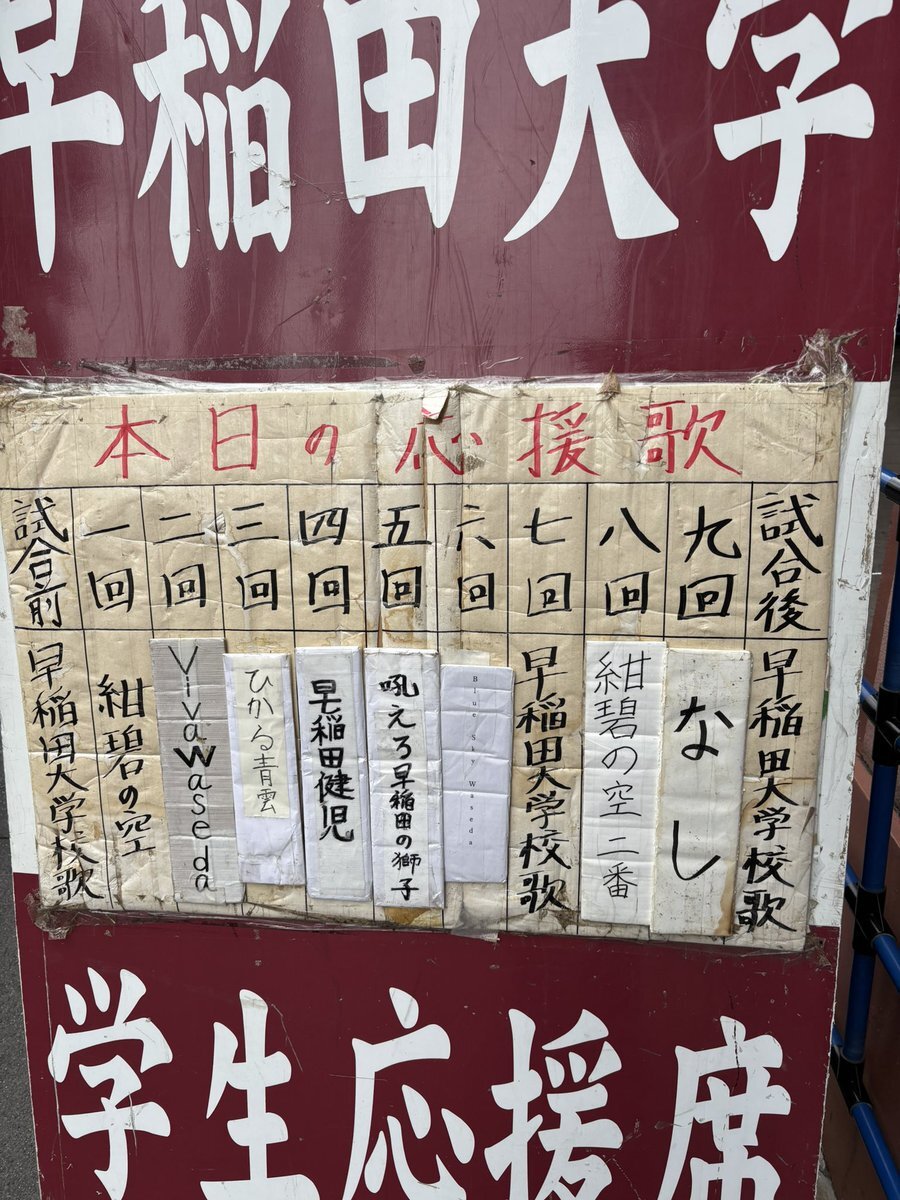 早稲田大学
本日の応援歌
試合前 一回 二回 三回 四回 五回 六回 七回 八回 九回 試合後
早稲田大学校歌
紺碧の空
Viva Waseda
ひかる青雲
早稲田健児
吼えろ早稲田の獅子
Blue Sky Waseda
早稲田大学校歌
紺碧の空 二番
なし
早稲田大学校歌
学生応援席